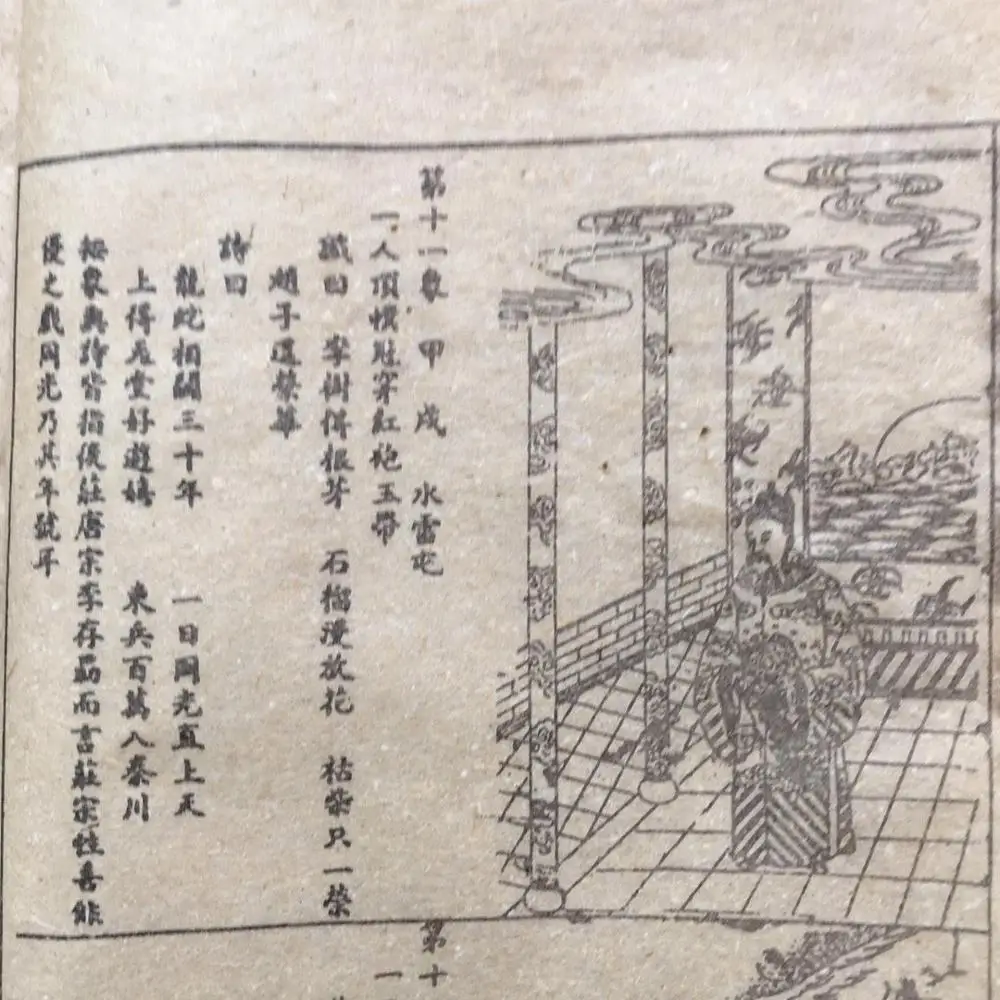 第十一象 甲戌 水雷屯
一人頂幞 穿紅袍玉帶
讖曰 李樹得根芽 石榴漫放花 枯柴只一榮
趙子還榮華
詩曰
龍蛇相鬬三十年 一日同光直上天
上得天堂好遊嬉 東兵百萬入秦川
按象與詩皆指後莊唐宗李存勗而言莊宗性喜俳
優之戲同光乃其年號耳
第十
一